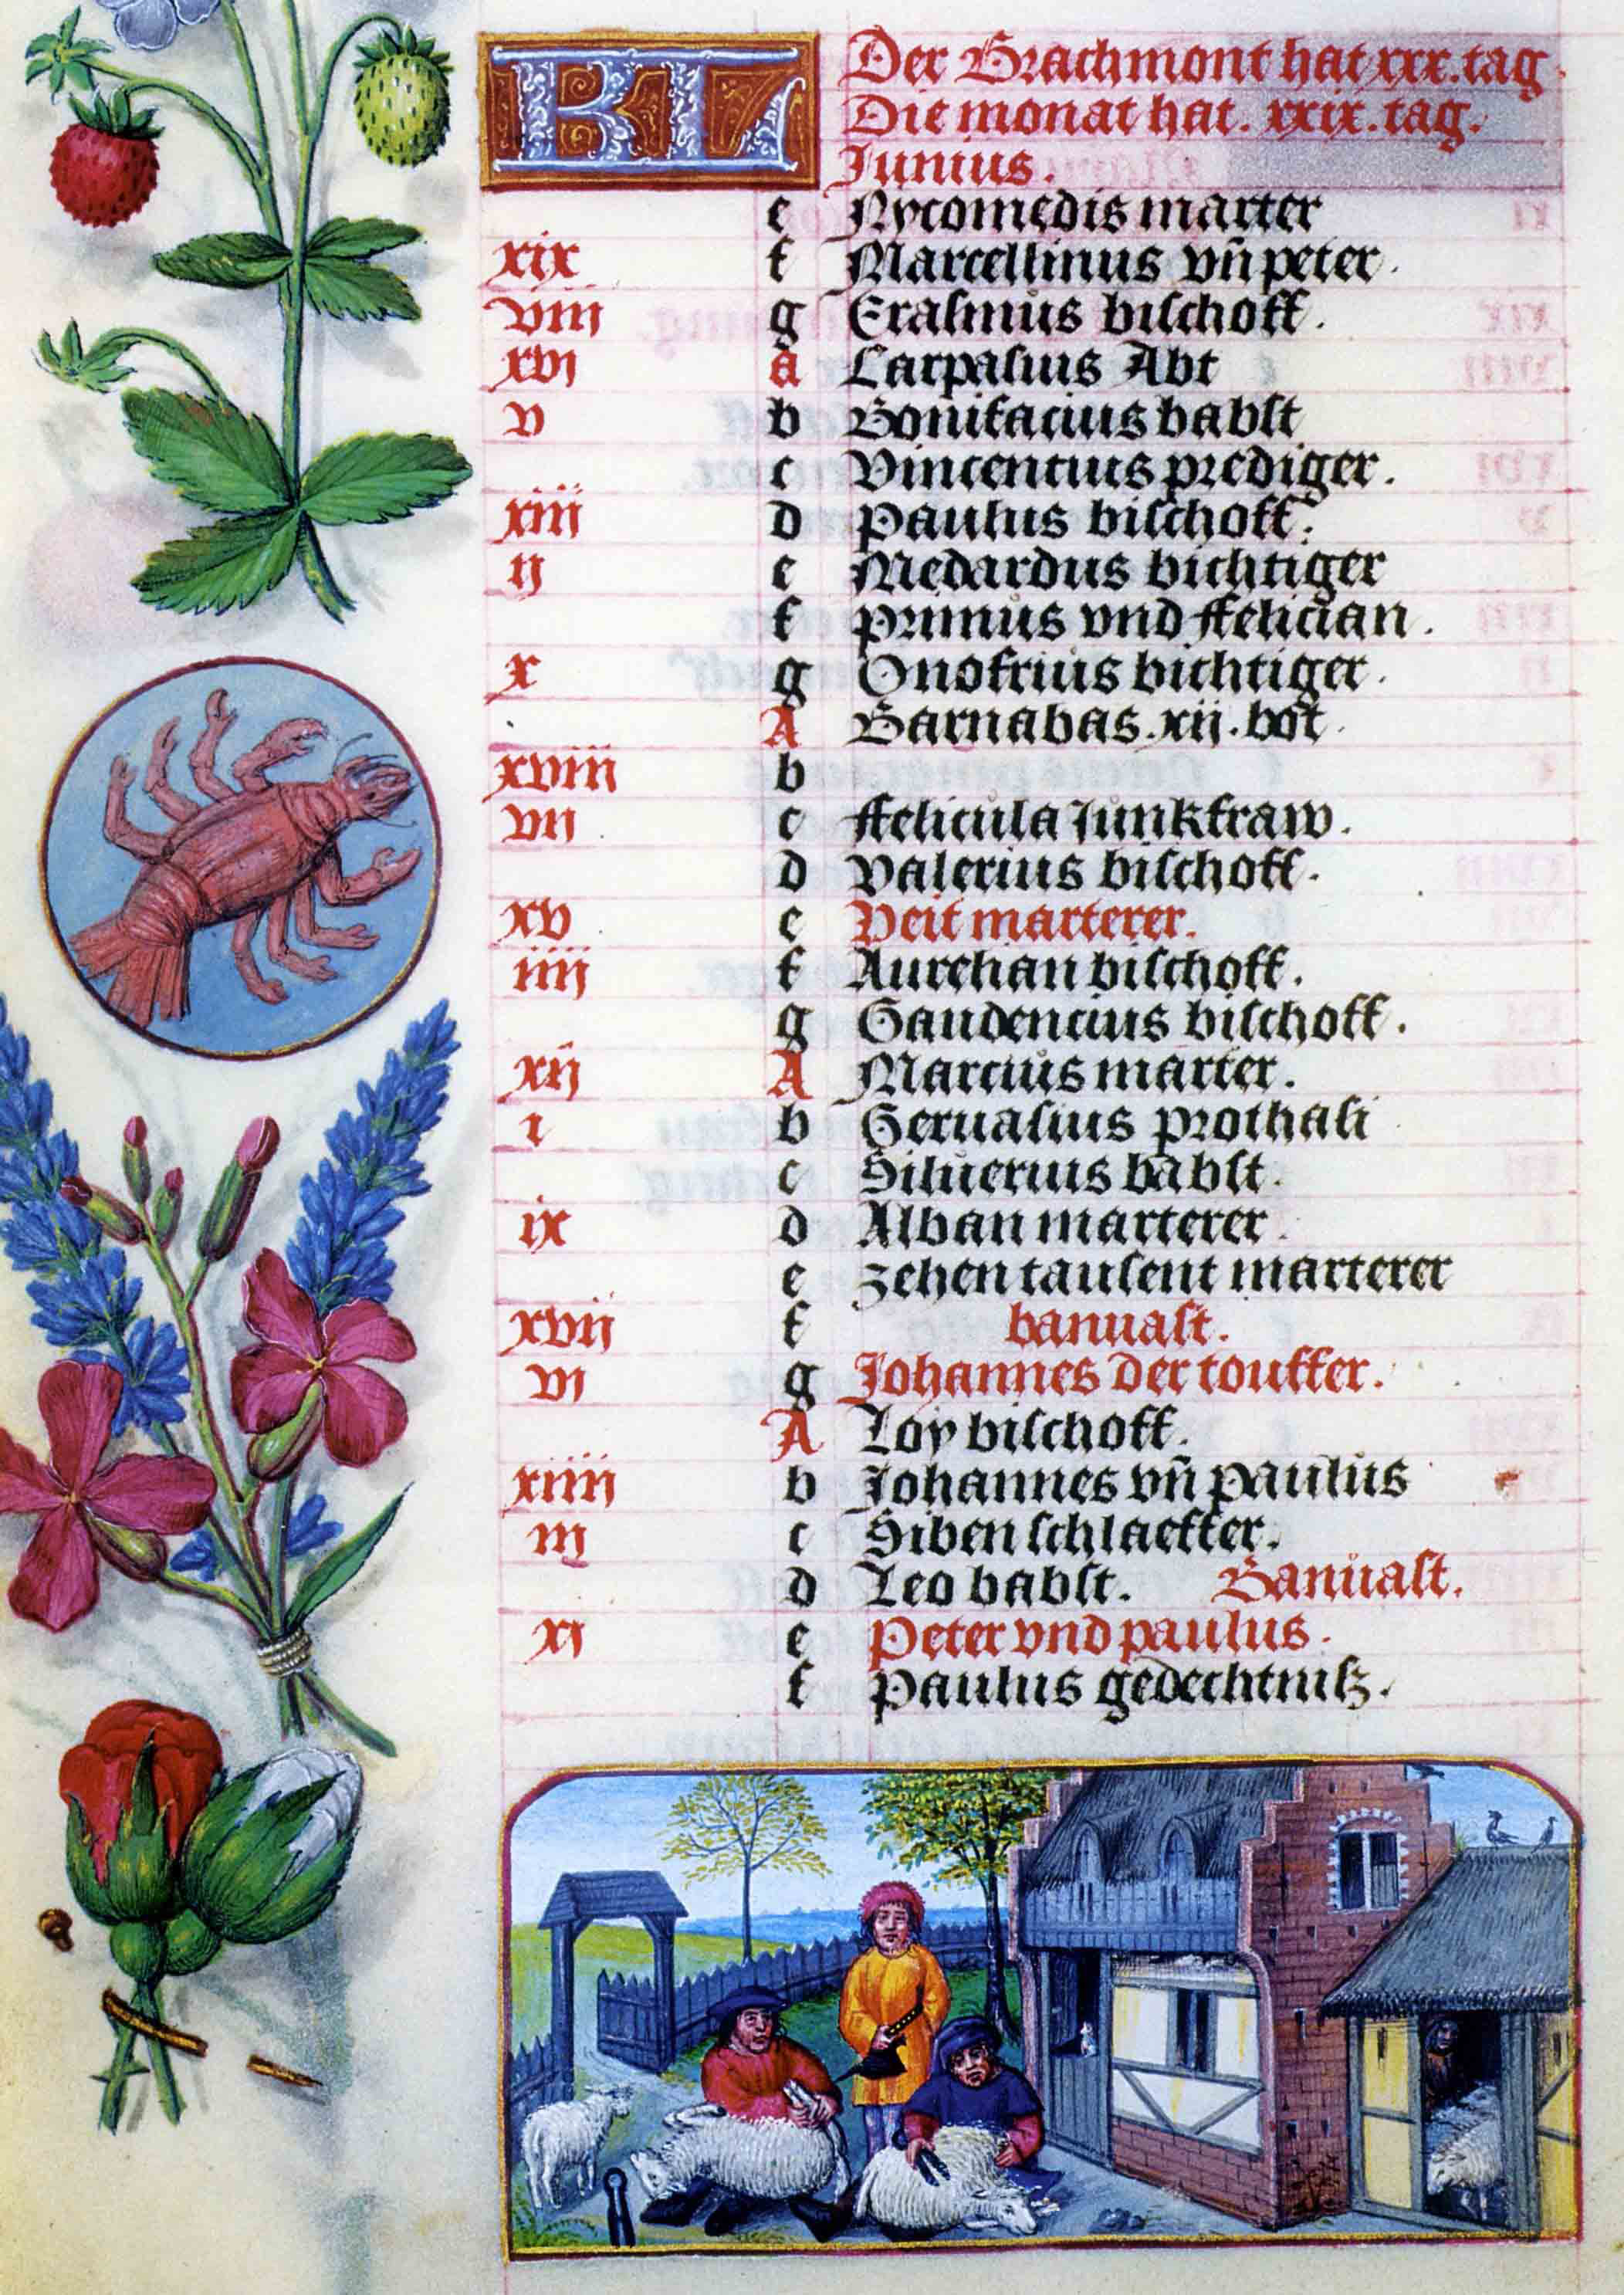 KL Der Brachmont hat xxx. tag
Die monat hat. xxix. tag.
Junius.
e Nycomedis marter
xix f Marcellinus vn̄ peter.
viii g Erasmus bischoff.
xvi a Carpasius Abt
v b Bonifacius babst
c Vincentius prediger.
xiii d Paulus bischoff.
ij e Medardus bichtiger
f Primus vnd ffelician.
x g Onofrius bichtiger.
A Barnabas. xij. bot.
xviii b
vii c ffelicula Junkfraw.
d Valerius bischoff.
xv e Veit marterer.
iiii f Aurelian bischoff.
g Gaudencius bischoff.
xij A Marcius marter.
i b Geruasius prothasi
c Siluerius babst.
ix d Alban marterer.
e zehen tausent marterer
xvij f banuast.
vi g Johannes der touffer.
A Loy bischoff.
xiiii b Johannes vn̄ paulus
iij c Siben schlaeffer.
d Leo babst. Banuast.
xi e Peter vnd paulus.
f Paulus gedechtnisz.